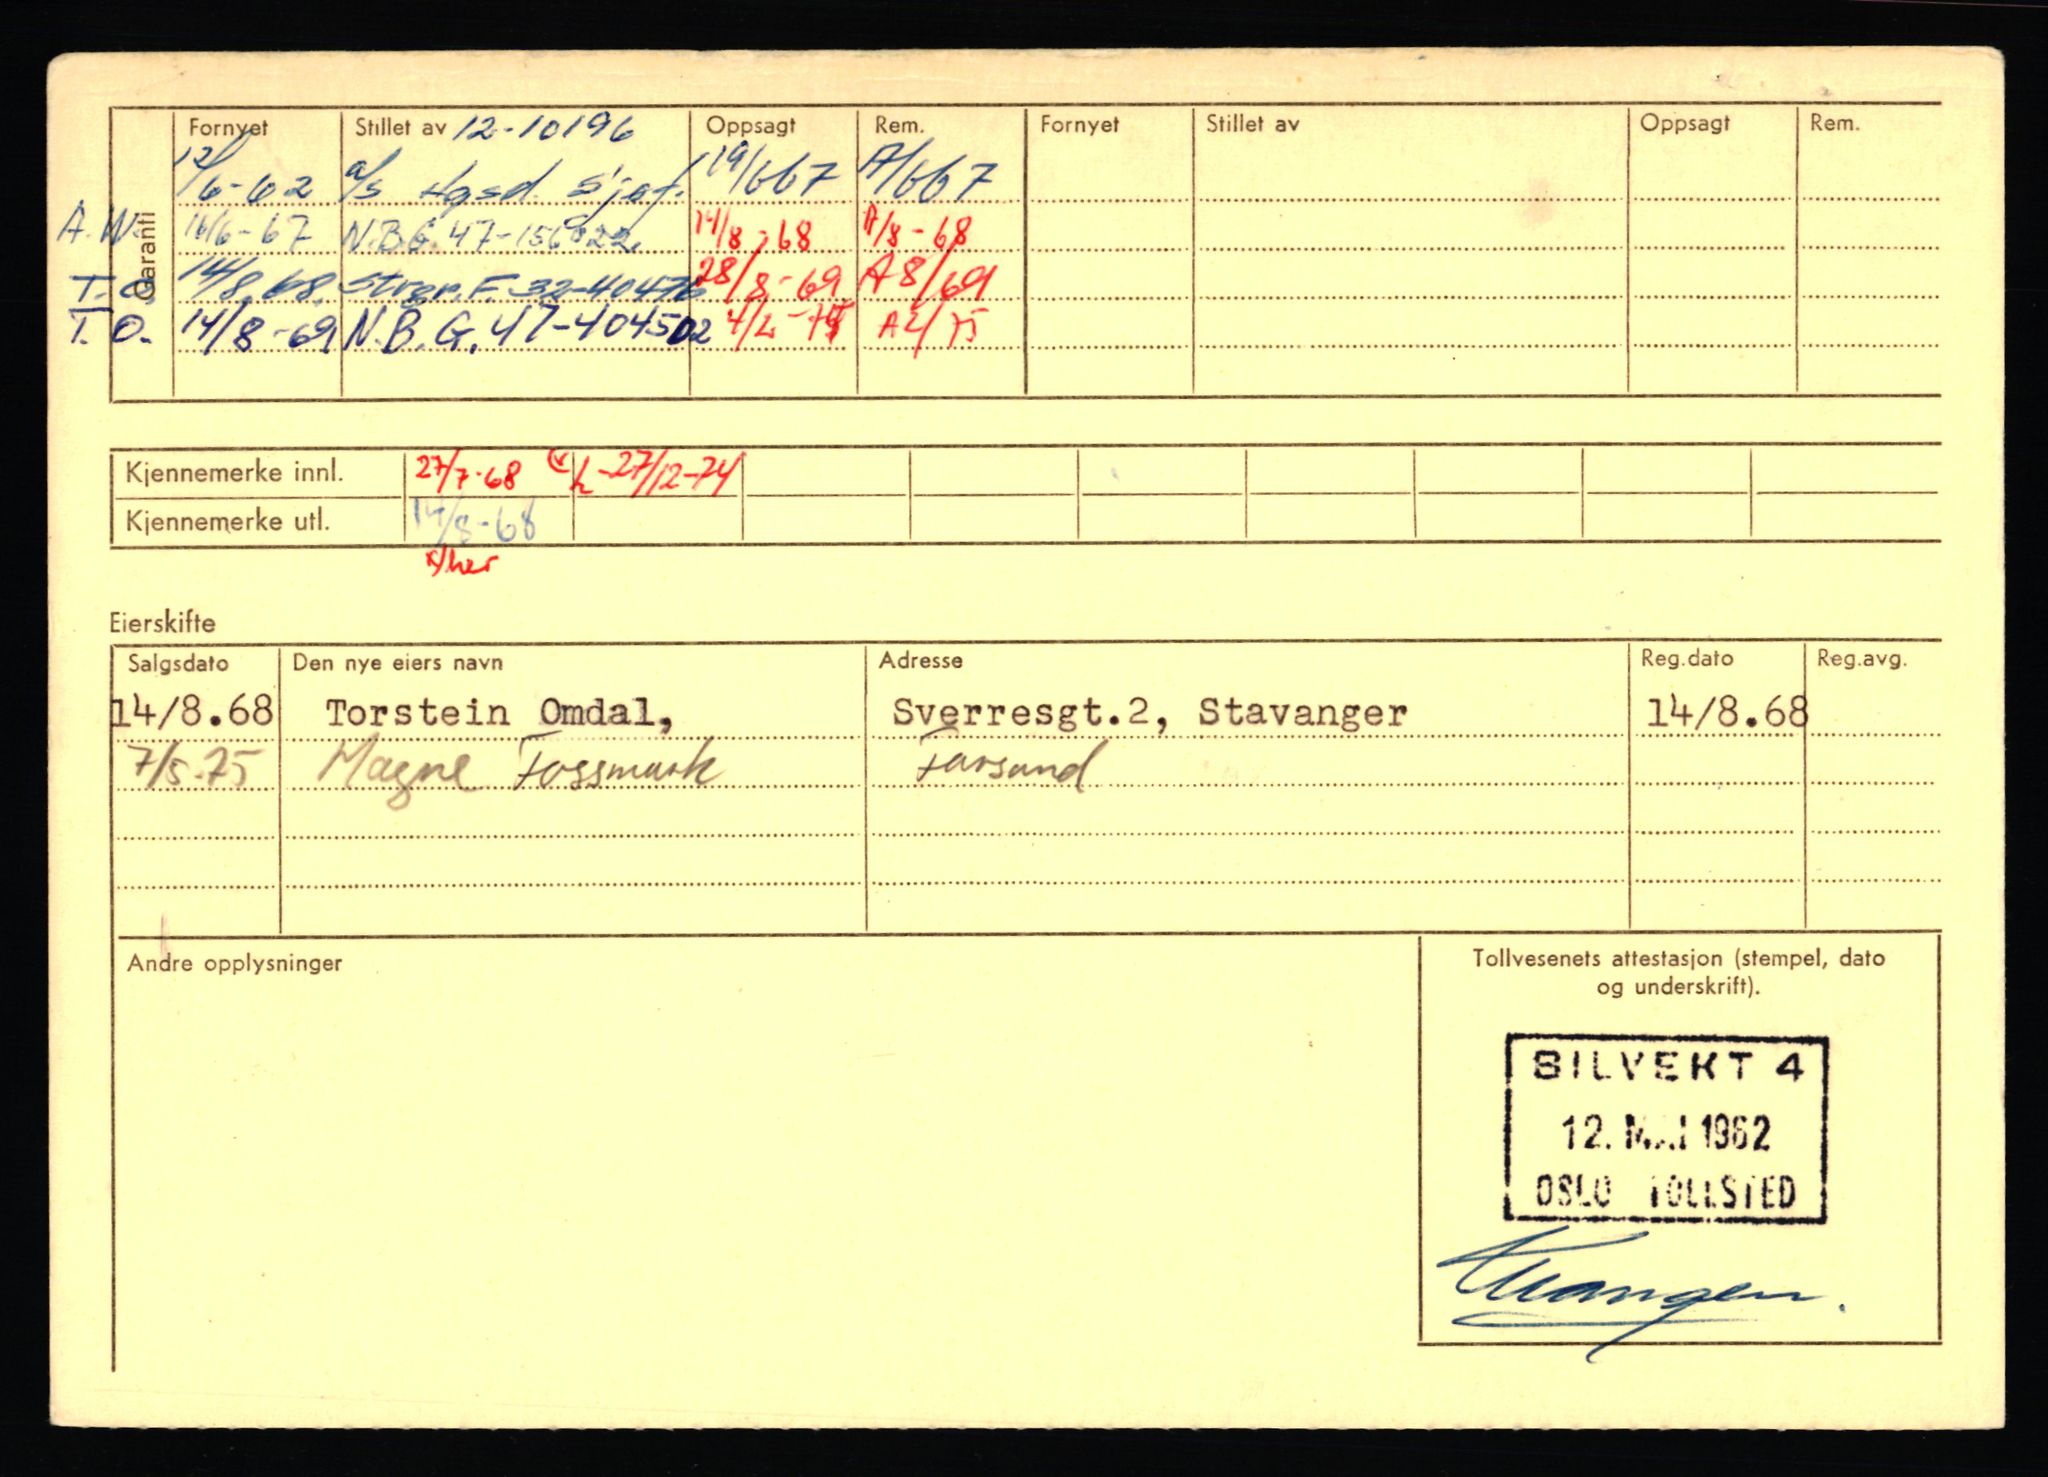 Fornyet Stillet av 12-10196 Oppsagt Rem. Fornyet Stillet av Oppsagt Rem.
12/6-62 a/s Hgsd. Sjøf. 19/667 A/667
Garanti
A.W. 16/6-67 N.B.G. 47-156822 14/8-68 A/8-68
T.O. 14/8.68. Strgr.F. 32-40476 28/8-69 A8/69
T.O. 14/8-69 N.B.G. 47-404502 4/2-75 A2/75
Kjennemerke innl. 27/7-68 27/12-74
Kjennemerke utl. 14/8-68
x/her
Eierskifte
Salgsdato Den nye eiers navn Adresse Reg.dato Reg.avg.
14/8.68 Torstein Omdal, Sverresgt.2, Stavanger 14/8.68
7/5-75 Magne Fossmark Farsund
Andre opplysninger
Tollvesenets attestasjon (stempel, dato
og underskrift).
BILVEKT 4
12. MAI 1962
OSLO TOLLSTED